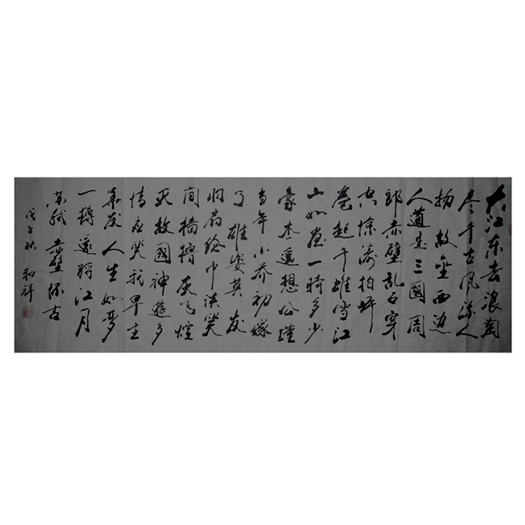 大江东去浪淘
尽千古风流人
物故垒西边
人道是三國周
郎赤壁乱石穿
空惊涛拍岸
卷起千堆雪江
山如画一时多少
豪杰遥想公瑾
当年小乔初嫁
了雄姿英发
羽扇纶巾谈笑
间樯橹灰飞烟
灭故國神遊多
情应笑我早生
华发人生如梦
一樽还酹江月
苏轼赤壁怀古
戊子秋和祥